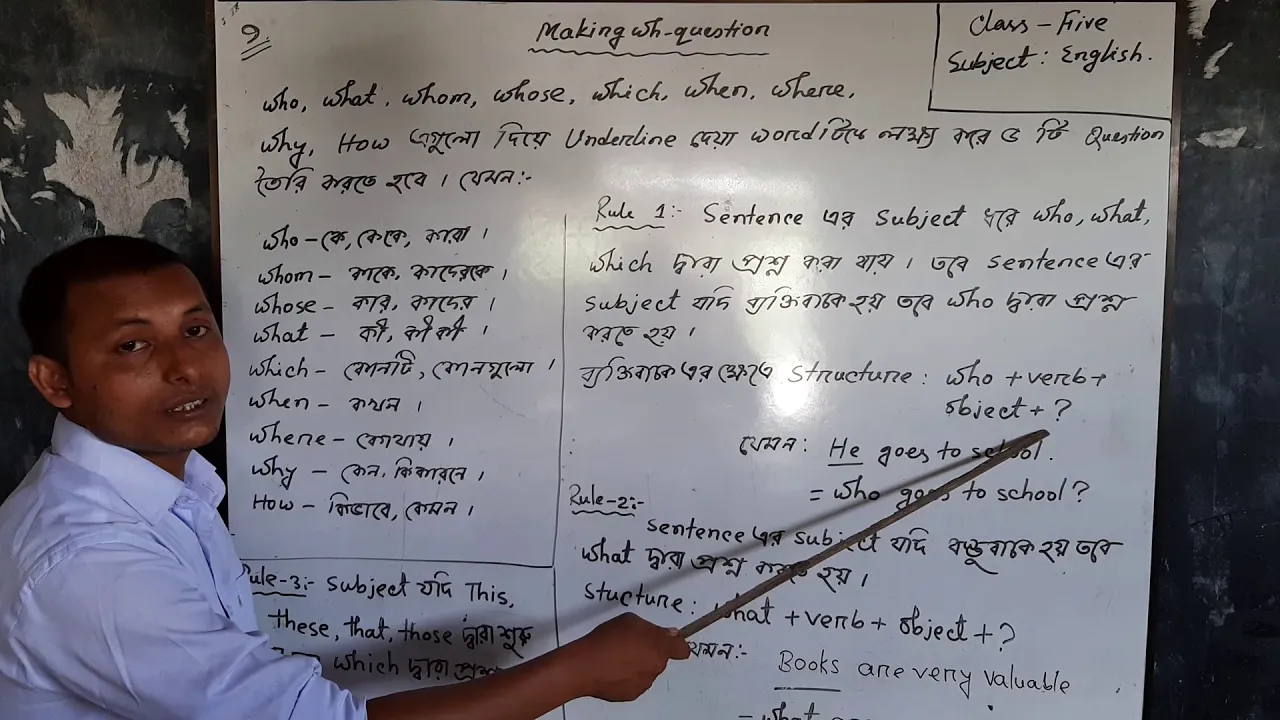 9
Making wh-question
Class – Five
Subject : English.
Who, What, Whom, Whose, Which, When, Where,
Why, How এগুলো দিয়ে Underline দেয়া word টিকে লক্ষ্য করে ৫ টি Question
তৈরি করতে হবে । যেমন:-
Who – কে, কেকে, কারা ।
Whom – কাকে, কাদেরকে ।
Whose – কার, কাদের ।
What – কী, কী কী ।
Which – কোনটি, কোনগুলো ।
When – কখন ।
Where – কোথায় ।
Why – কেন, কিকারনে ।
How – কিভাবে, কেমন ।
Rule-3:- Subject যদি This,
these, that, those দ্বারা শুরু
which দ্বারা প্রশ্ন
Rule 1:- Sentence এর Subject ধরে who, what,
which দ্বারা প্রশ্ন করা যায় । তবে sentence এর
subject যদি ব্যক্তিবাচক হয় তবে who দ্বারা প্রশ্ন
করতে হয় ।
ব্যক্তিবাচক এর ক্ষেত্রে structure : who + verb +
object + ?
যেমন : He goes to school.
= who goes to school ?
Rule-2:-
Sentence এর subject যদি বস্তুবাচক হয় তবে
what দ্বারা প্রশ্ন করতে হয় ।
Stucture : what + verb + object + ?
যেমন:-
Books are very valuable
= what